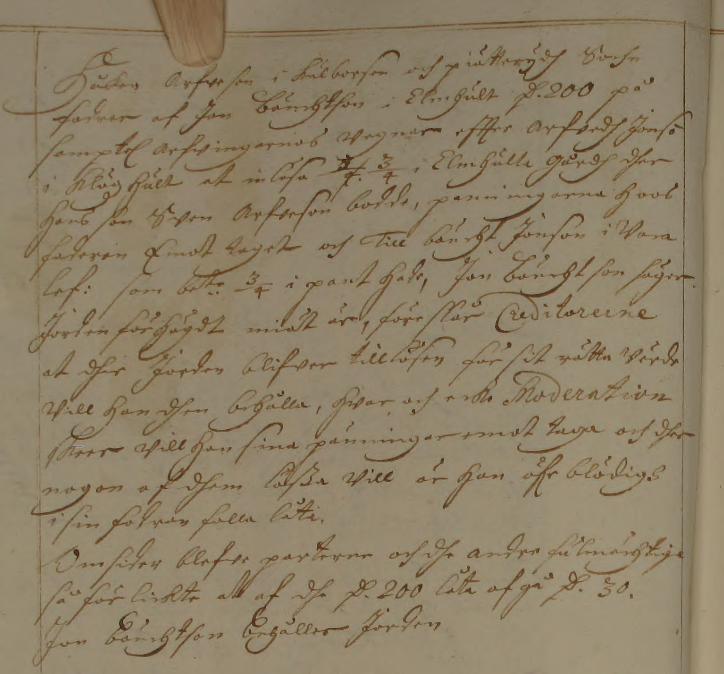 Håkan Arfveson i Külboesen och piätterydh Sochn
fodrar af Jon Bänchtson i Elmhult P. 200 på
samptl Arfvingarnas Vegnar effter Arfvedh Jonss
i Klöghult at inlösa 3/4 i Elmhulta gårdh dher
hans son Sven Arfveson bodde, panningarna Hoos
faderen Emot taget och Till bäncht Jönson i Vara
lef: som bete 3/4 i pant hade, Jon Bänchtson säger
Jorden förhögdt midt är, föreslår Creditorerne
at dher Jorden blifver tillösen för sit rätta Värde
Vill han dhen behålla, hvar och icke Moderation
skeer Vill han sina panningar emot taga och dher
nogon af dhem läsa Vill är han öfr blödigh
i sin fodran falla låta.
Omsider blefve parterne och dhe andre fulmächtige
så förlickte att af dhe P. 200 låta afgå P. 30.
Jon Bänchtson behåller Jorden